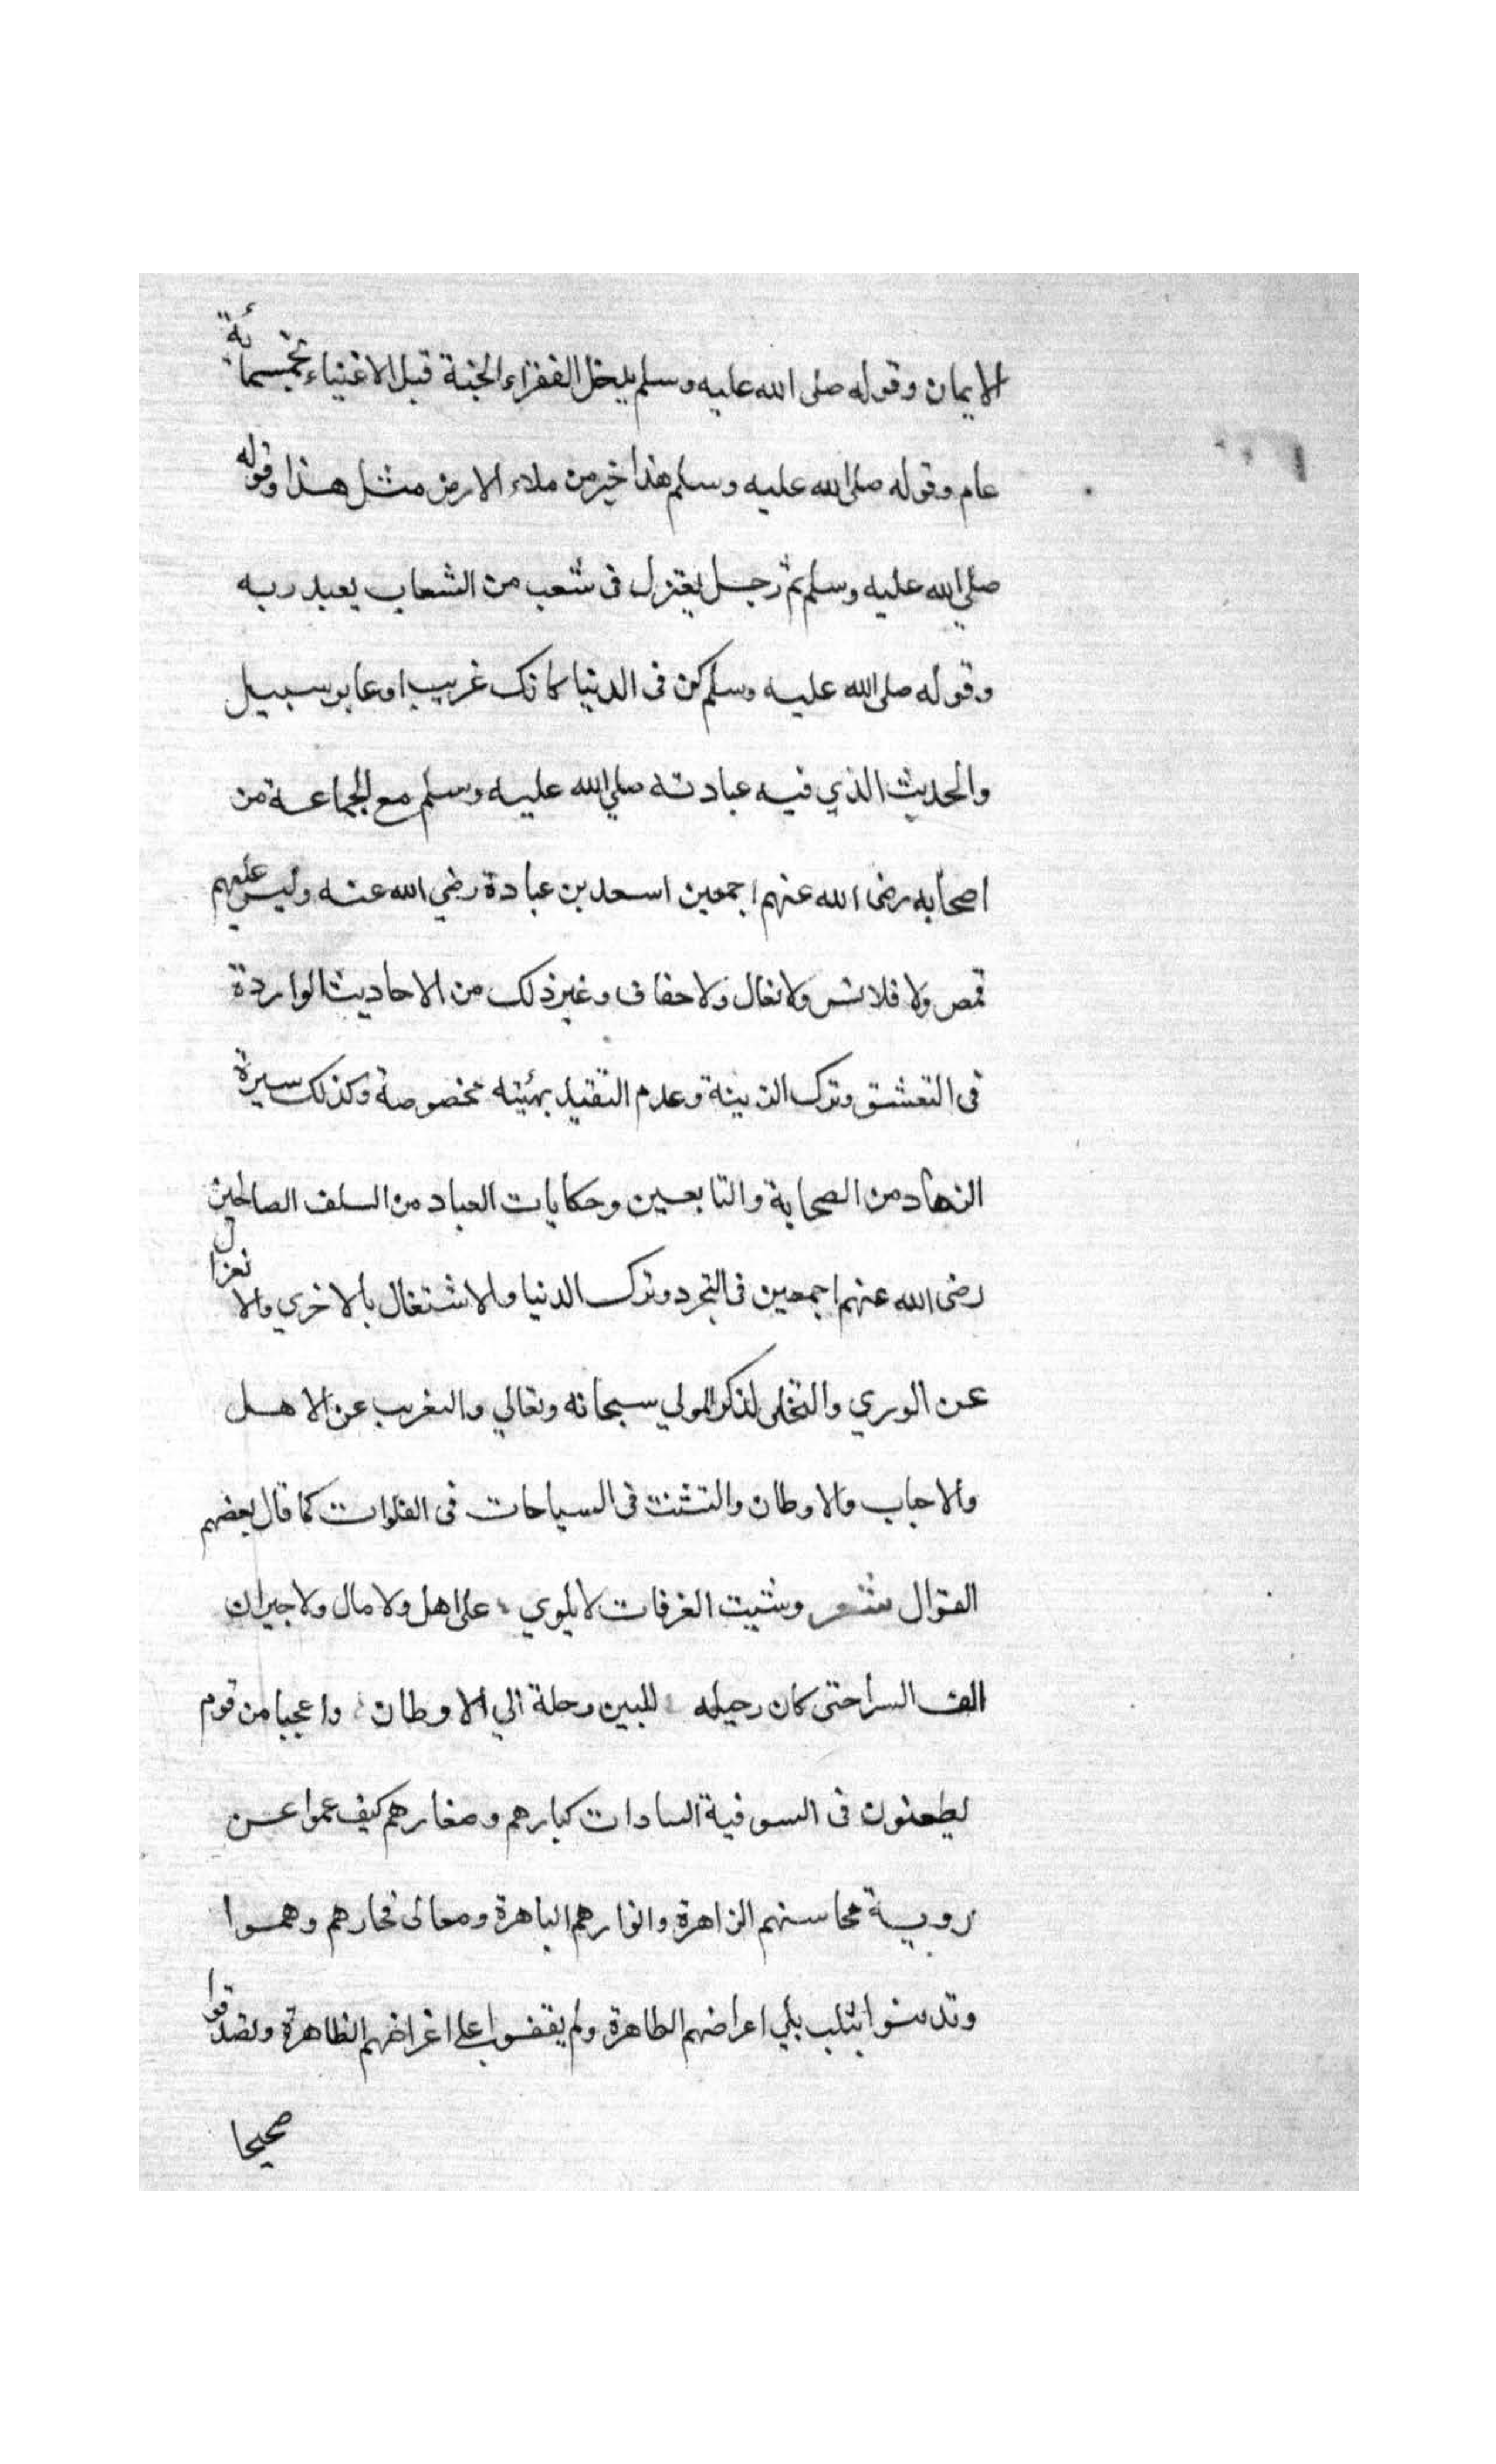 الايمان وقوله صلى الله عليه وسلم يدخل الفقراء الجنة قبل الاغنياء بخمسمائة
عام وقوله صلى الله عليه وسلم هذا خير من ملاء الارض مثل هذا وقوله
صلي الله عليه وسلم ثم رجل يعتزل في شعب من الشعاب يعبد ربه
وقوله صلى الله عليه وسلم كن في الدنيا كانك غريب او عابر سبيل
والحديث الذي فيه عيادته صلي الله عليه وسلم مع الجماعة من
اصحابه رضى الله عنهم اجمعين اسعد بن عبادة رضي الله عنه وليس عليهم
قمص ولا قلانس ولا نعال ولا خفاف وغير ذلك من الاحاديث الواردة
في التقشق وترك الزينة وعدم التقيد بهئيته مخصوصة وكذلك سيرة
الزهاد من الصحابة والتابعين وحكايات العباد من السلف الصالحين
رضى الله عنهم اجمعين في التجرد وترك الدنيا والاشتغال بالاخري والانعزال
عن الوري والتخلى لذكر المولي سبحانه وتعالي والتغريب عن الاهل
والاحباب والاوطان والتشتت في السياحات في الفلوات كما قال بعضهم
القوال شعر ومشيت العزفات لا يلوي على اهل ولا مال ولا جيران
الف السرا حتى كان رحيله للبين رحلة الي الاوطان واعجبا من قوم
يطعنون في السوفية السادات كبارهم وصغارهم كيف عموا عن
روية محاسنهم الزاهرة وانوارهم الباهرة ومعالى فخارهم وهموا
وتدنسوا بثلب اعراضهم الطاهرة ولم يقفوا على اغراضهم الظاهرة وتصدقوا
صحيحا